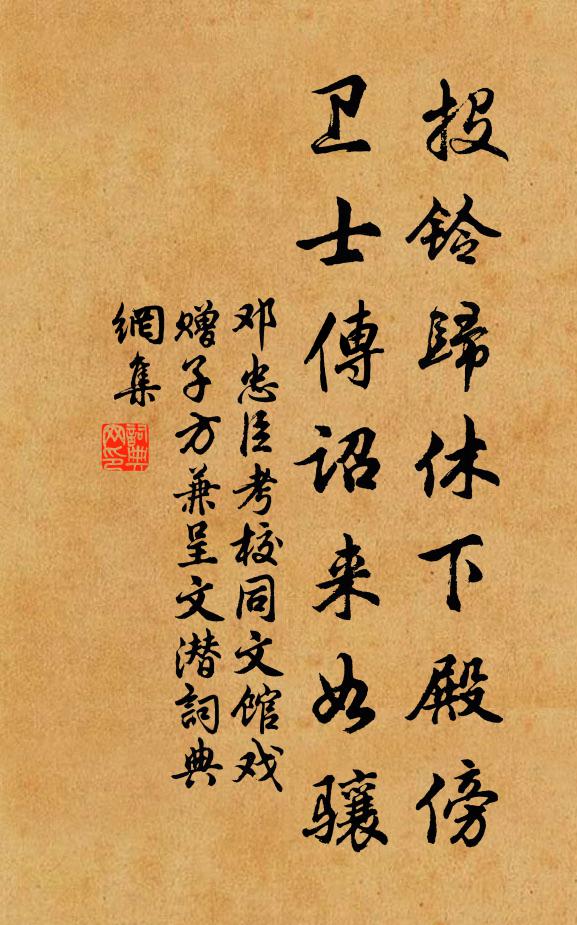 投鈴歸休下殿傍
卫士傳詔来如驤
邓忠臣考校同文馆戏
赠子方兼呈文潜詞典
網集
詞典
网印